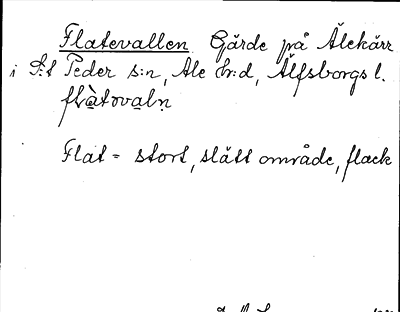 Flatevallen Gärde på Älekärr
i S:t Peder s:n, Ale hr:d, Älfsborgs l.
flàtovaln
Flat = stort, slätt område, flack